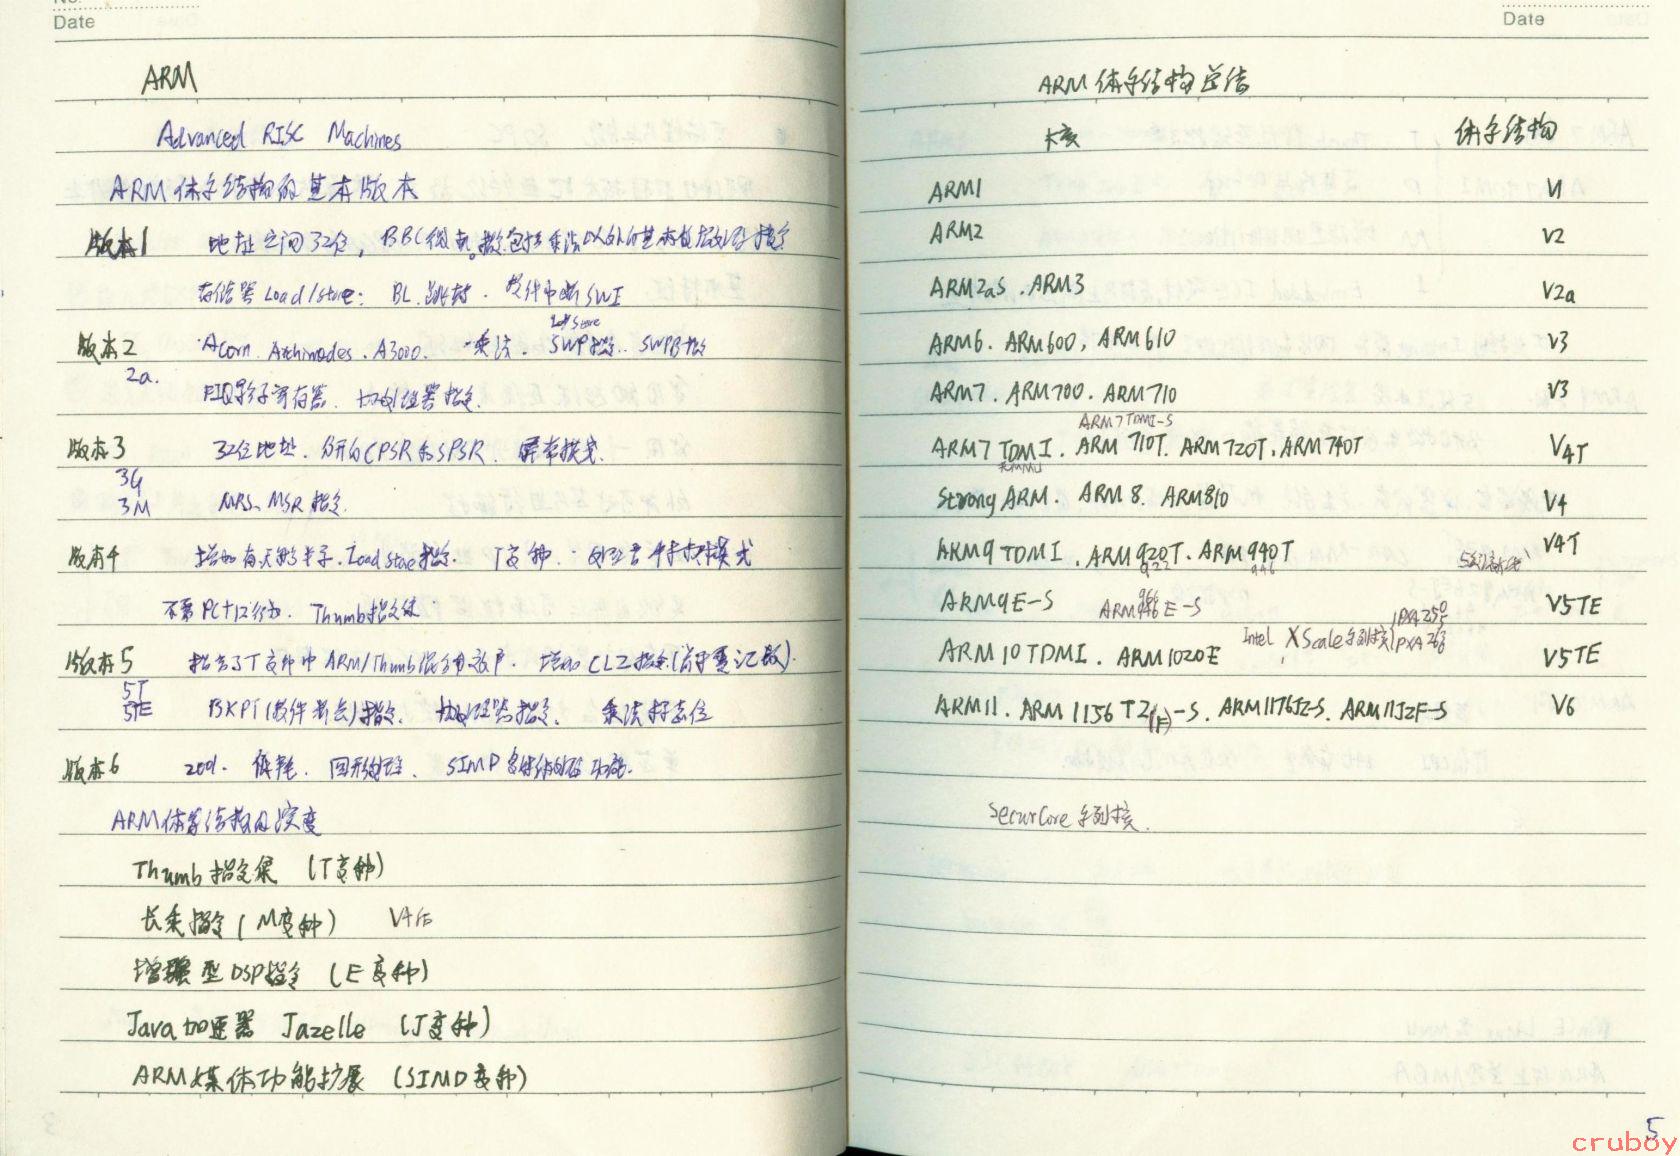 Date
ARM
Advanced RISC Machines
ARM体系结构的基本版本
版本1 地址空间32位, BBC微机。指令包括乘法以外的基本数据处理指令
存储器Load/store; BL 跳转. 软件中断SWI
Load Store
版本2 Acorn. Archimedes. A3000. 乘法. SWP指令. SWPB指令
2a. FIQ影子寄存器. 协处理器指令.
版本3 32位地址. 分开的CPSR和SPSR.
3G
3M MRS. MSR指令.
版本4 增加有符号半字. Load store指令. T变种.
不需PC+12行为. Thumb指令
版本5 提高了T变种中ARM/Thumb混合使用效率. 增加CLZ指令
5T
5TE BKPT(软件断点)指令. 协处理器指令. 乘法标志位
版本6 2001. 低耗. 图形处理. SIMD 功能.
ARM体系结构的演变
Thumb指令集 (T变种)
长乘指令(M变种) V4后
增强型DSP指令 (E变种)
Java加速器 Jazelle (J变种)
ARM媒体功能扩展 (SIMD变种)
Date
ARM体系结构总结
核 体系结构
ARM1 V1
ARM2 V2
ARM2aS. ARM3 V2a
ARM6. ARM600, ARM610 V3
ARM7. ARM700. ARM710 V3
ARM7TDMI-S
ARM7TDMI. ARM710T. ARM720T. ARM740T V4T
无MMU
StrongARM. ARM8. ARM810 V4
ARM9TDMI. ARM920T. ARM940T V4T
922 946
5级流水线
966
ARM9E-S ARM946E-S V5TE
Intel XScale系列核 PXA250
PXA263
ARM10TDMI. ARM1020E V5TE
ARM11. ARM1156T2(F)-S. ARM1176JZ-S. ARM11JZF-S V6
SecurCore系列核.
5
cruboy